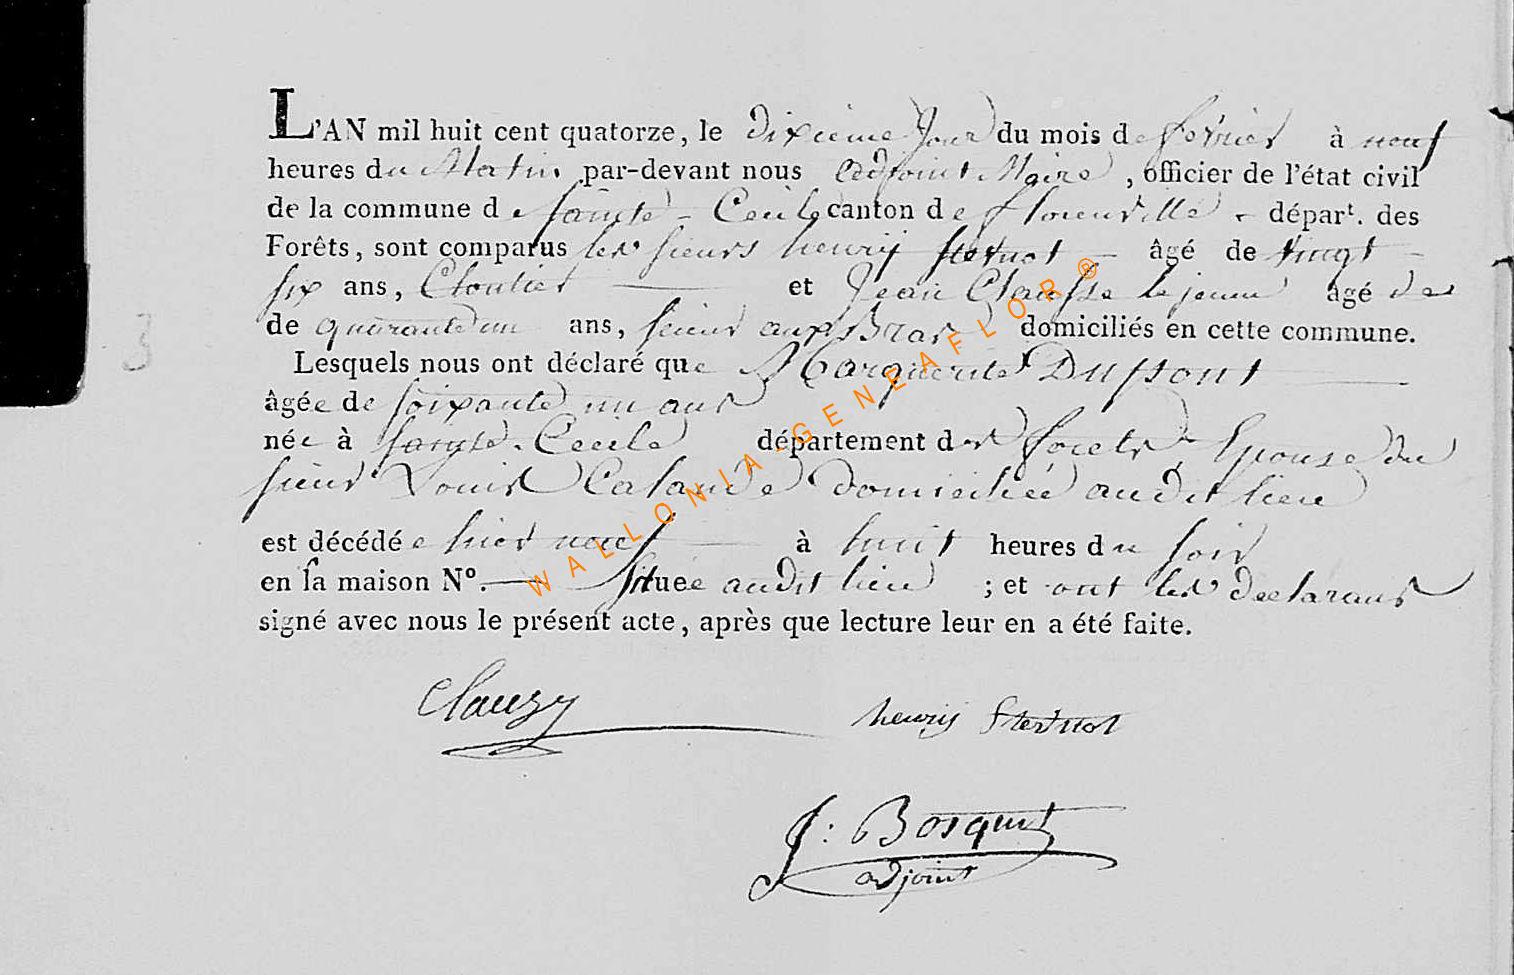 L'AN mil huit cent quatorze, le dixieme Jour du mois de fevrier à neuf
heures du Matin par-devant nous adjoint Maire, officier de l'état civil
de la commune de Sainte-Cecile canton de florenville départ. des
Forêts, sont comparus les sieurs henrij Sternot âgé de vingt
six ans, Cloutier et Jean Clausse le jeune âgé de
de quarante un ans, scieur aux Bras domiciliés en cette commune.
Lesquels nous ont déclaré que Marguerite Dupont
âgée de soixante un ans
née à Sainte-Cecile département des forets Epouse du
sieur Louis Calande domiciliée audit lieu
est décédée hier neuf à huit heures du soir
en sa maison Nº. située audit lieu ; et ont les declarans
signé avec nous le présent acte, après que lecture leur en a été faite.
henrij Sternot
J: Bosquet
adjoint
3
WALLONIA-GENEAFLOR®